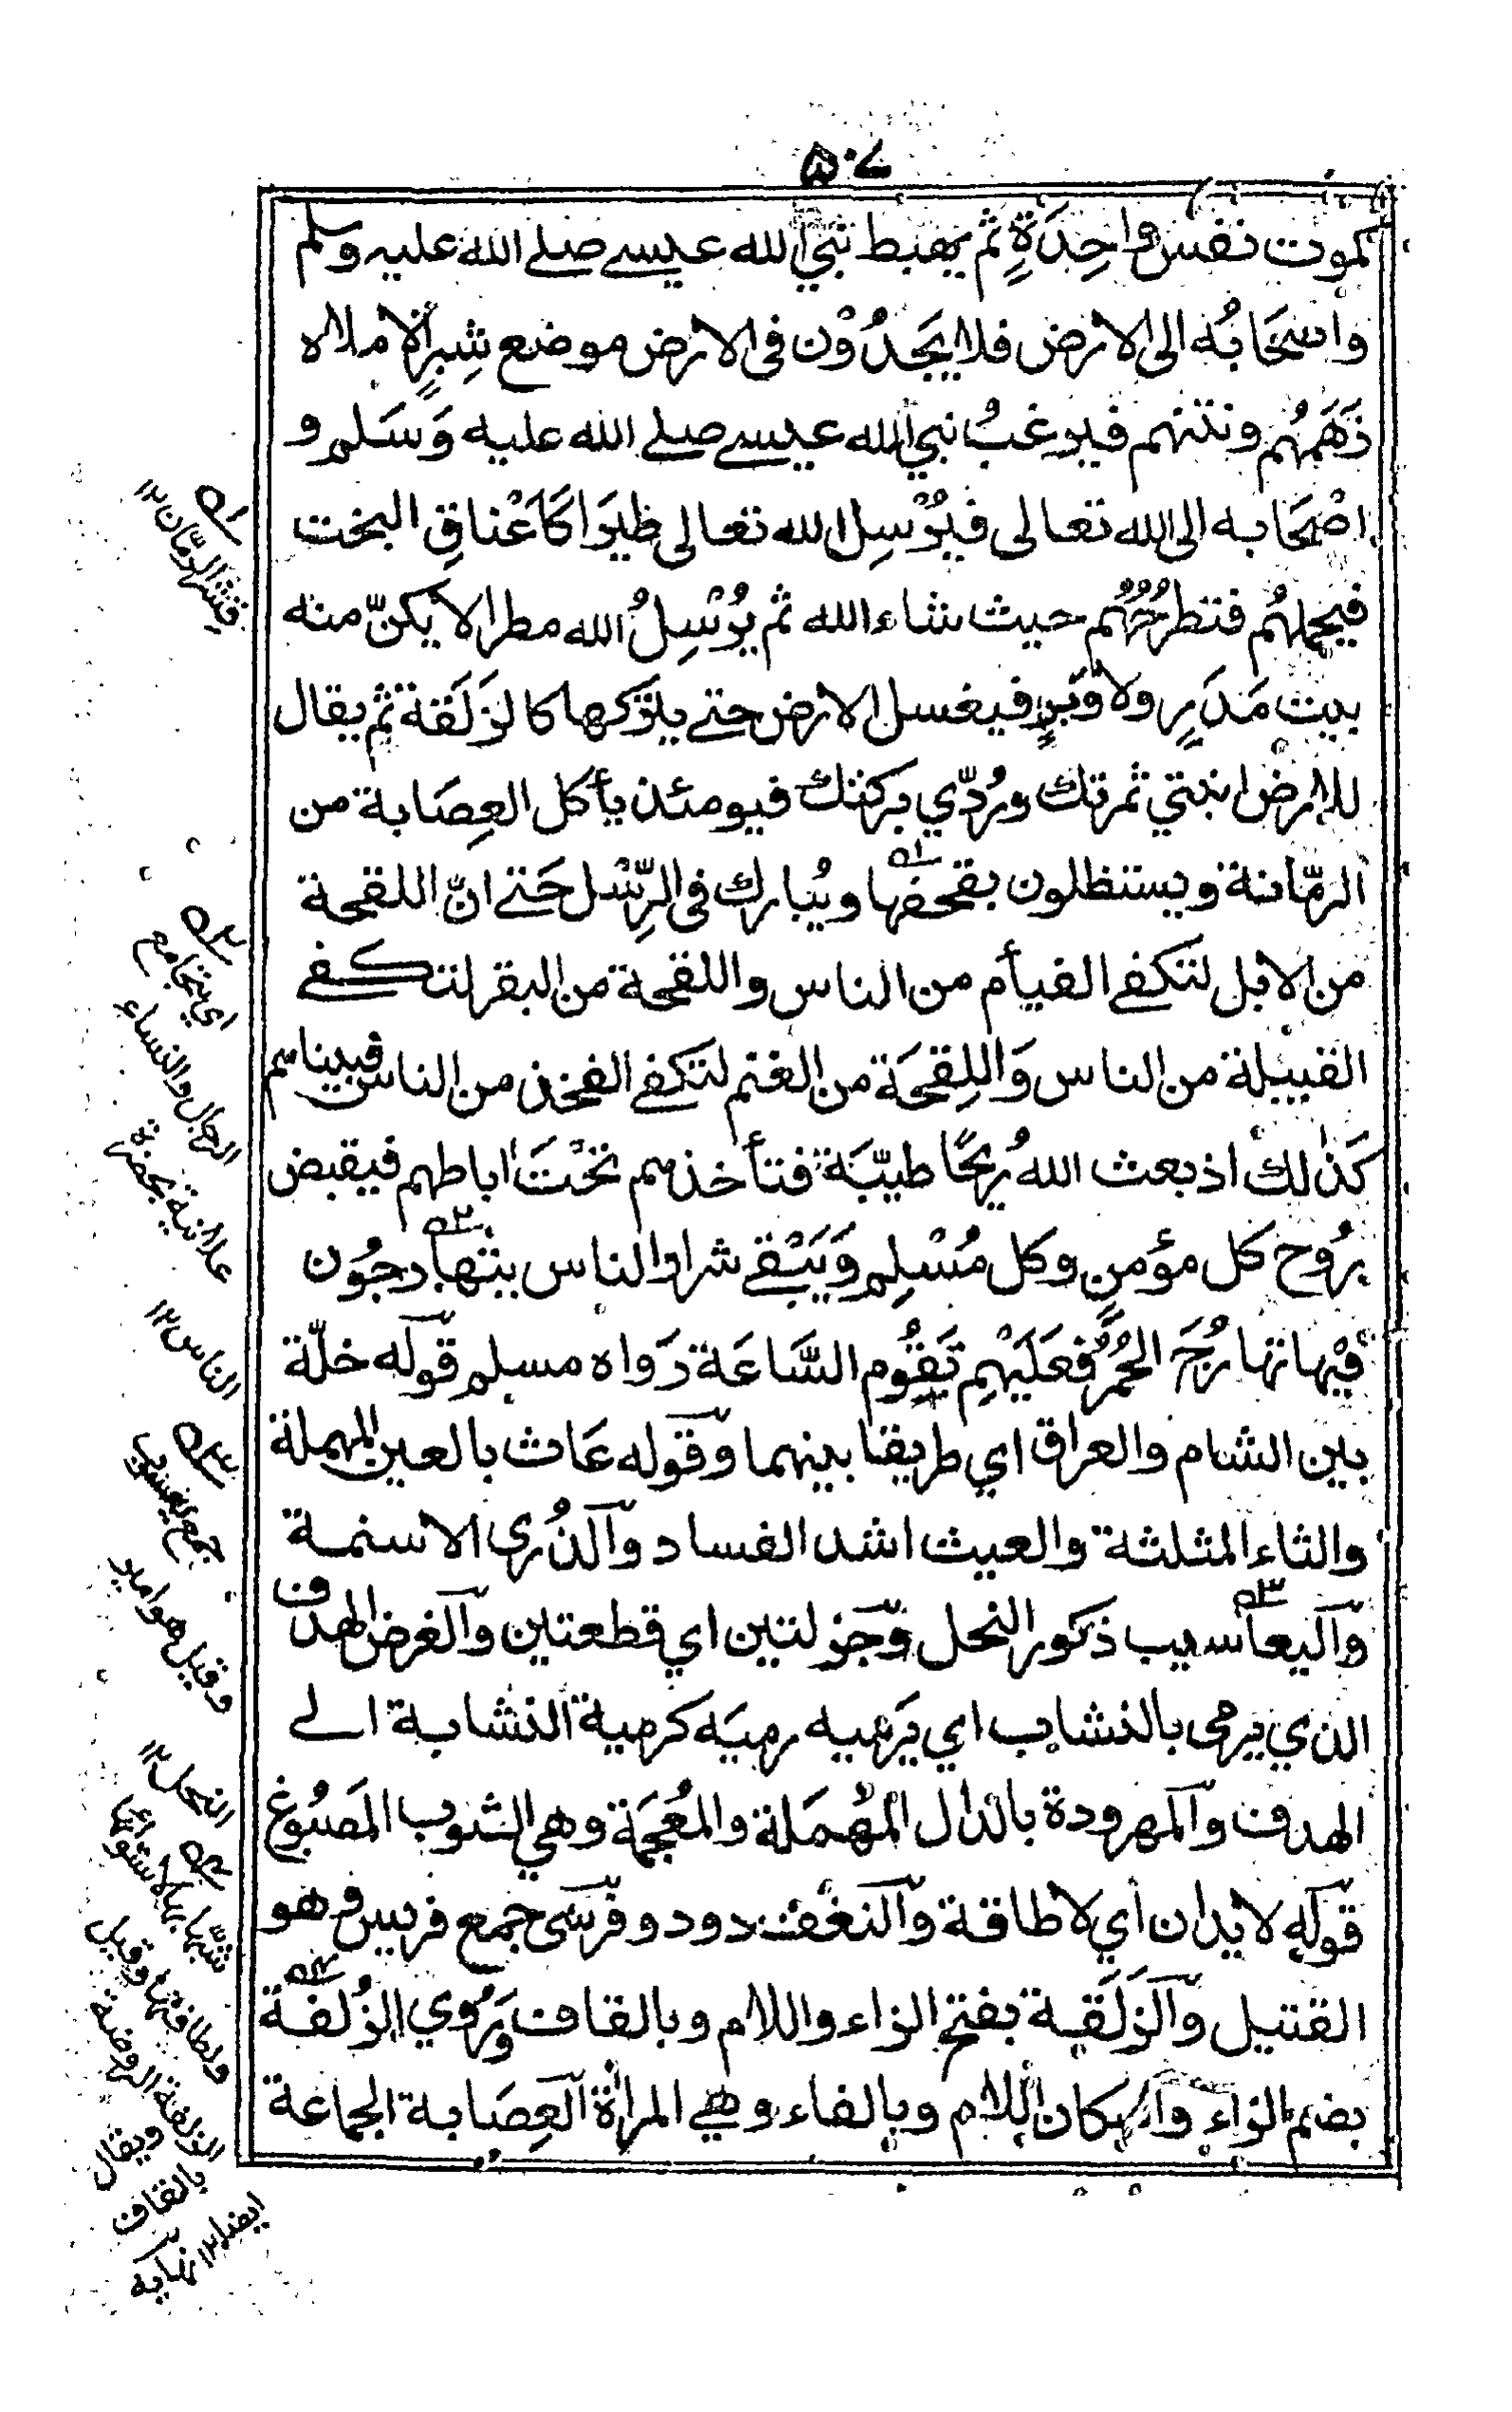 ٥٠٧
كموت نفس واحِدَةٍ ثم يهبط نبيّ الله عيسے صلے الله عليه وسلم
واصحَابُه الى الارض فلا يَجدُوْن فى الارض موضع شِبرٍ الا ملاه
زَهَمُهُم ونتنهم فيرغبُ نبي الله عيسے صلے الله عليه وَسَلم و
اصْحَابه الى الله تعالى فيُرْسِل الله تعالى طيرَا كَاَعْناقِ البخت
فيحملهُم فتطرَحُهُم حيث شاء الله ثم يُرْسِلُ الله مطرا لا يكنّ منه
بيت مَدَرٍ ولا وَبَرٍ فيغسل الارض حتے يترُكها كالزَلَقة ثم يقال
للارض انبتي ثمرتك ورُدّي بركتك فيومئذ يأكل العِصَابة من
الرمّانة ويستظلون بقحفها ويُبارك فى الرِّسْل حَتے انّ اللقحة
من الابل لتكفے الفيأم من الناس واللقحة من البقر لتكفے
القبيلة من الناس وَاللِقحَة من الغنم لتكفے الفخذ من الناس فبيناهم
كَذٰلك اذ بعث اللهُ رِيحًا طيّبَة فتأخذهم تحْتَ اباطهم فيقبض
رُوح كل مؤمنٍ وكل مُسْلِم وَيَبْقے شرار الناس يتهارجُون
فيْها تهارُجَ الحُمُر فعَلَيْهِم تَقُوم السَّاعَة رَواه مسلم قوله خلّة
بين الشام والعراق اي طريقا بينهما وقوله عَاث بالعين المهملة
والثاء المثلثة والعيث اشد الفساد والذُرى الاسنمة
واليعاسيب ذكور النحل وجزلتين اي قطعتين والغرض الهدف
الذي يرمى بالنشاب اي يَرميه رميَه كرمية النشابة الے
الهدف والمهرودة بالدال المُهمَلة والمُعجَمَة وهي الثوب المَصبُوغ
قوله لا يدان اي لا طاقة والنغف دود وفرسى جمع فريس وهو
القتيل والزَلَقة بفتح الزاء واللام وبالقاف ورُوي الزُلفة
بضم الزاء واسكان اللام وبالفاء وهے المراة العِصَابة الجماعة
۱ے
قشر الرمّان ۱۲
۲ے
اي يتجامع
الرجال والنساء
علانية بحضرة
الناس ۱۲
۳ے
جمع يعسوب
وقيل هو امير
النحل ۱۲
۴ے
شبّهها بها لاستوائها
ولطافتها وقيل
الزلفة الروضة
ويقال
بالقاف
ايضا ۱۲ نهايه